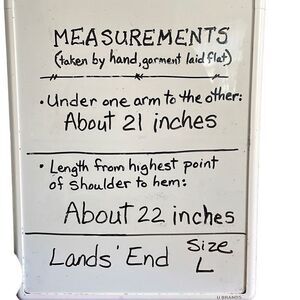 MEASUREMENTS
(taken by hand, garment laid flat)
• Under one arm to the other:
About 21 inches
• Length from highest point
of shoulder to hem:
About 22 inches
Lands' End Size
L
U BRANDS